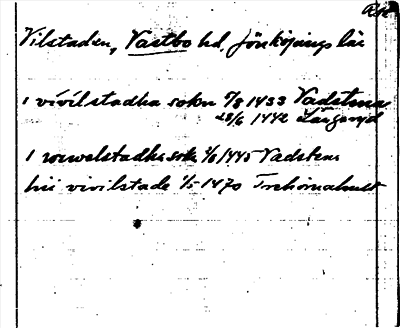 Vilstaden, Västbo hd, Jönköpings län
i vivilstadha sokn 5/8 1433 Vadstena
28/6 1442 Långaryd
I vewelstadha sokn 2/8 1445 Vadstena
hii vivilstade 1/5 1470 Trehörnahult